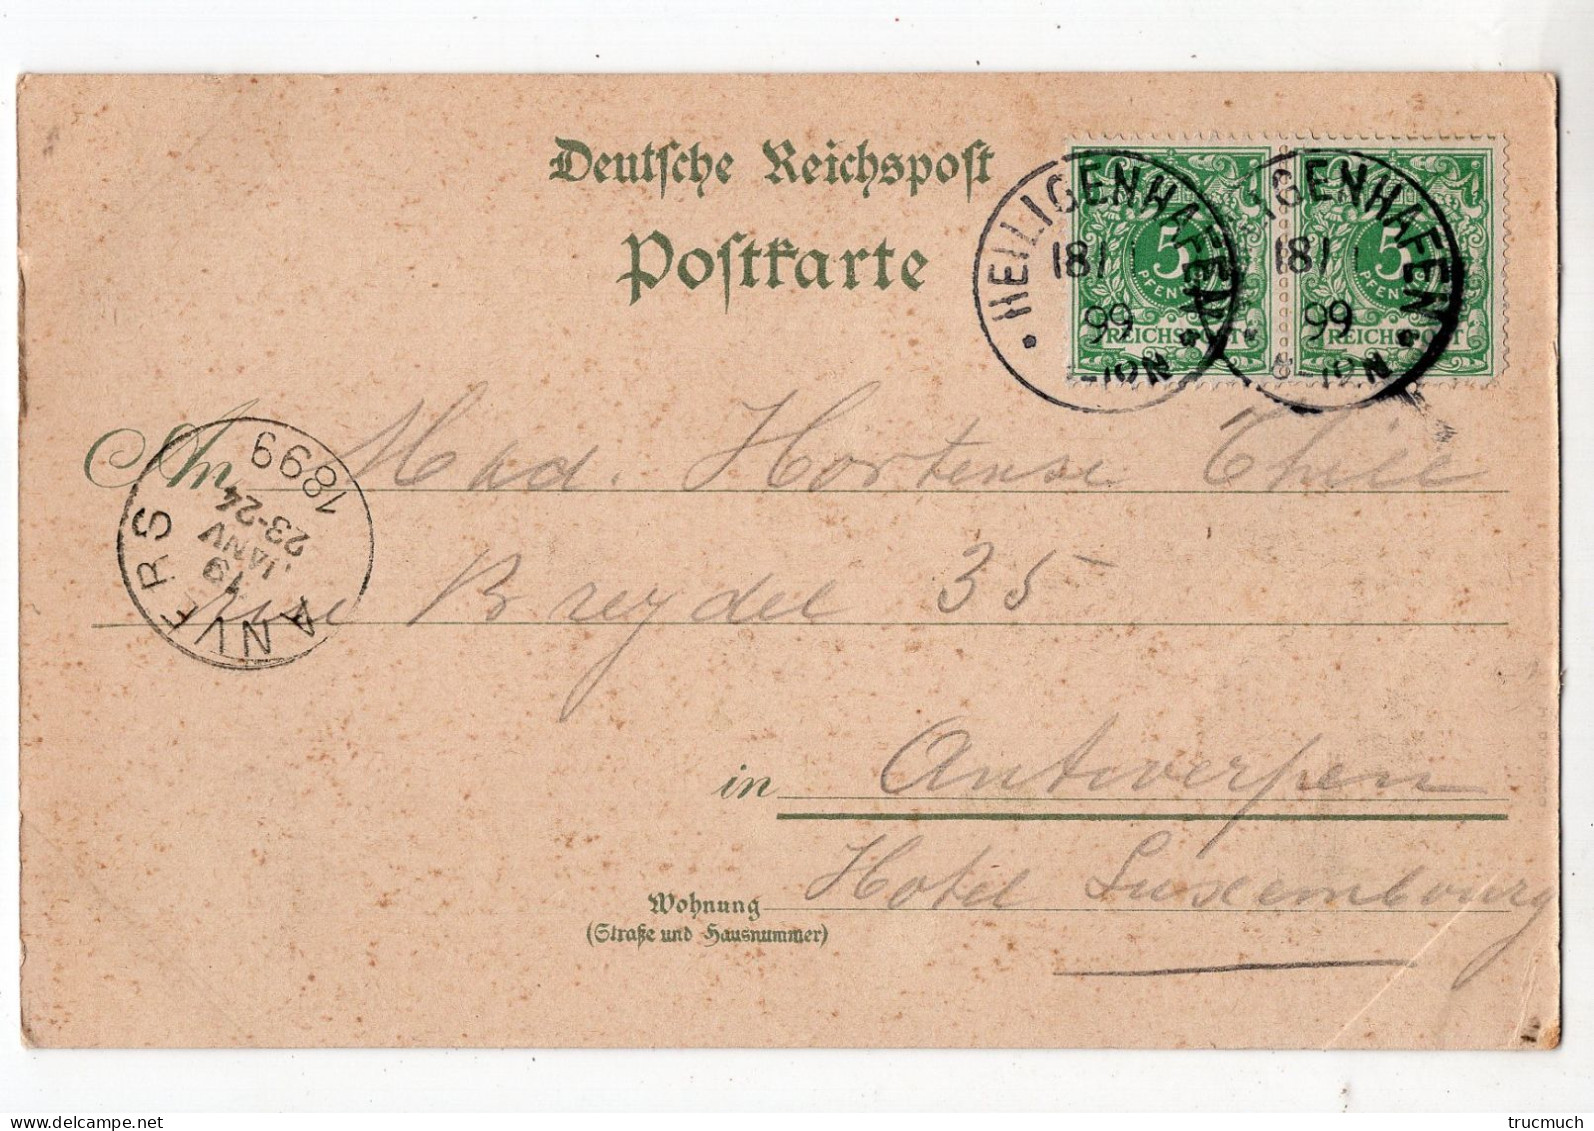 Deutsche Reichspost
Postkarte
HEILIGENHAFEN
18 1
99
5
PFENNIG
REICHSPOST
18 1
99
5
PFENNIG
REICHSPOST
An Mad. Hortense Thill
ANVERS
19
JANV
23-24
1899
rue Breydel 35
in Antwerpen
Wohnung Hotel Luxembourg
(Straße und Hausnummer)
trucmuch